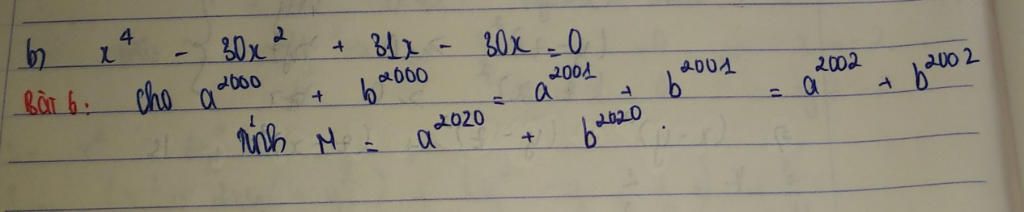 b) x⁴ - 30x² + 31x - 30x = 0
Bài 6: Cho a²⁰⁰⁰ + b²⁰⁰⁰ = a²⁰⁰¹ + b²⁰⁰¹ = a²⁰⁰² + b²⁰⁰²
Tính M = a²⁰²⁰ + b²⁰²⁰.